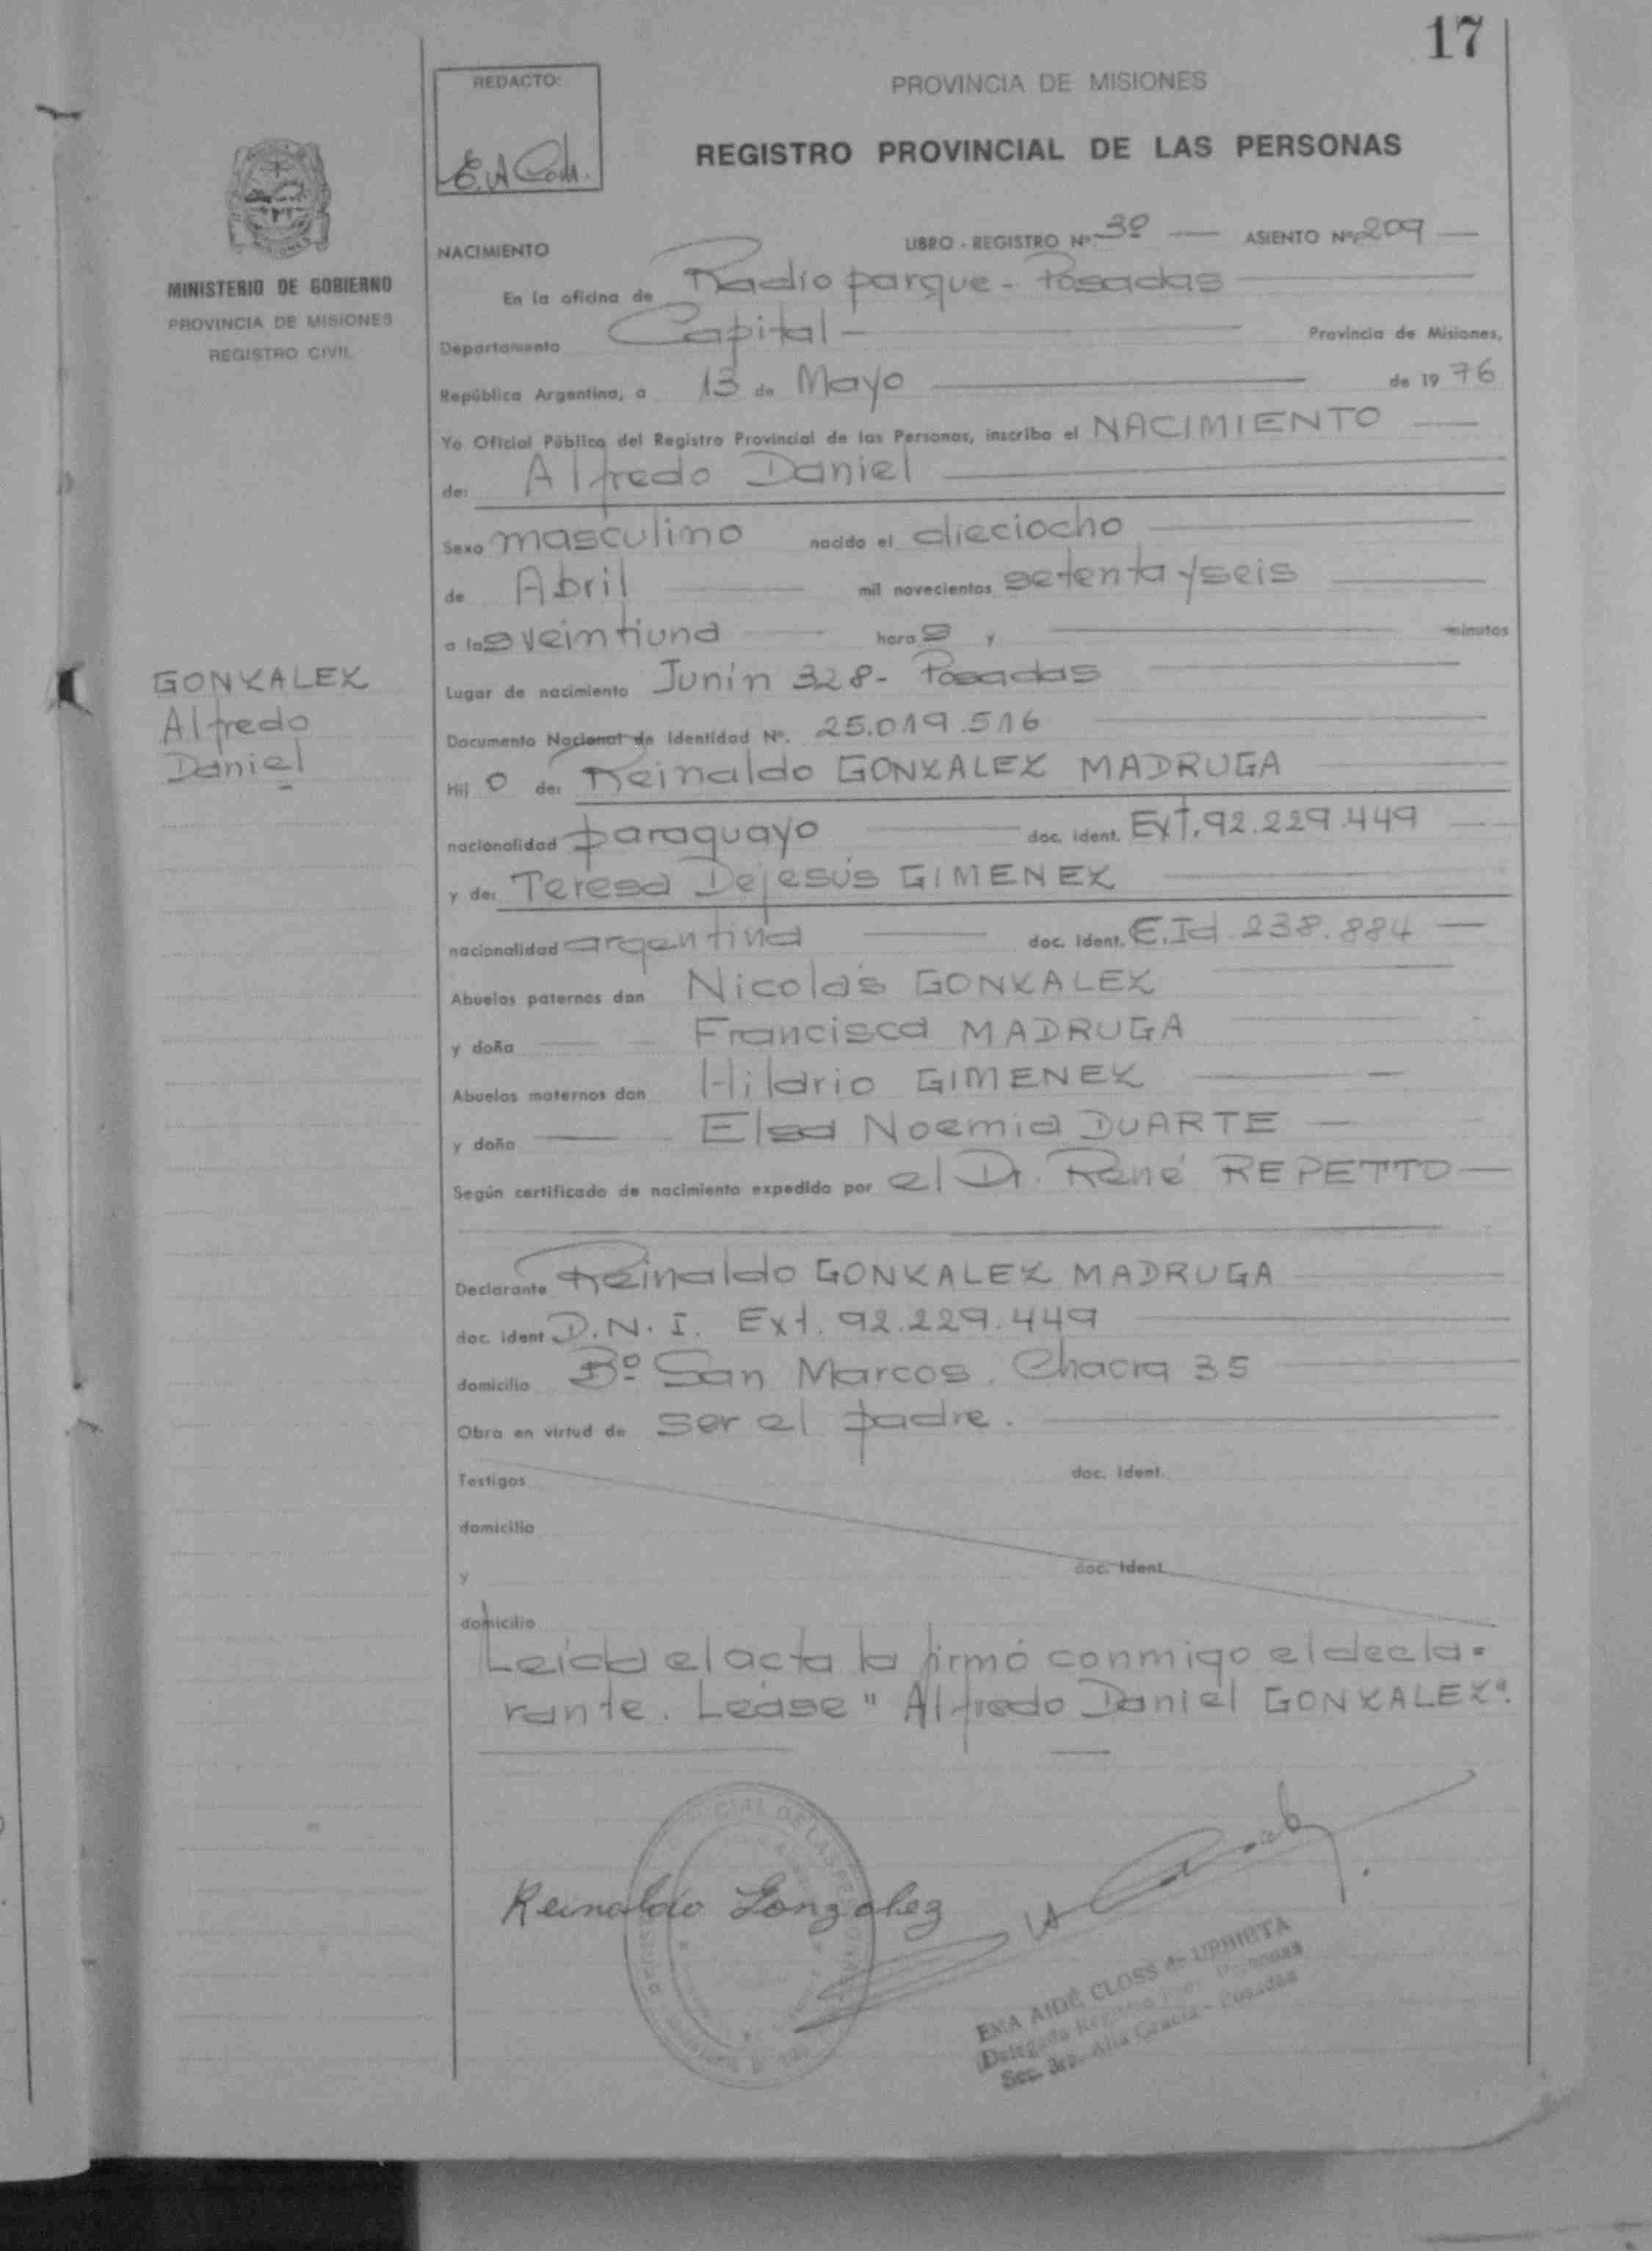 17
REDACTO:
PROVINCIA DE MISIONES
REGISTRO PROVINCIAL DE LAS PERSONAS
MINISTERIO DE GOBIERNO
PROVINCIA DE MISIONES
REGISTRO CIVIL
NACIMIENTO
LIBRO - REGISTRO Nº. 3º ASIENTO Nº. 209
En la oficina de Radio parque - Posadas
Departamento Capital Provincia de Misiones,
República Argentina, a 13 de Mayo de 1976
Yo Oficial Público del Registro Provincial de las Personas, inscribo el NACIMIENTO
de: Alfredo Daniel
Sexo masculino nacido el dieciocho
de Abril mil novecientos setenta y seis
a las veintiuna horas y minutos
GONZALEZ
Alfredo
Daniel
Lugar de nacimiento Junín 328 - Posadas
Documento Nacional de Identidad Nº. 25.019.516
Hijo de: Reinaldo GONZALEZ MADRUGA
nacionalidad paraguayo doc. ident. Ext. 92.229.449
y de: Teresa Dejesús GIMENEZ
nacionalidad argentina doc. ident. E.Id 238.884
Abuelos paternos don Nicolás GONZALEZ
y doña Francisca MADRUGA
Abuelos maternos don Hilario GIMENEZ
y doña Elsa Noemia DUARTE
Según certificado de nacimiento expedido por el Dr. René REPETTO
Declarante Reinaldo GONZALEZ MADRUGA
doc. ident D.N.I. Ext. 92.229.449
domicilio Bº San Marcos. Chacra 35
Obra en virtud de ser el padre.
Testigos doc. ident.
domicilio
y doc. ident.
domicilio
Leída el acta la firmó conmigo el decla=
rante. Léase "Alfredo Daniel GONZALEZ".
Reinaldo Gonzalez
EMA AIDÉ CLOSS de URBIETA
Delegada Registro Prov. Personas
Sec. 3ra. Alta Gracia - Posadas